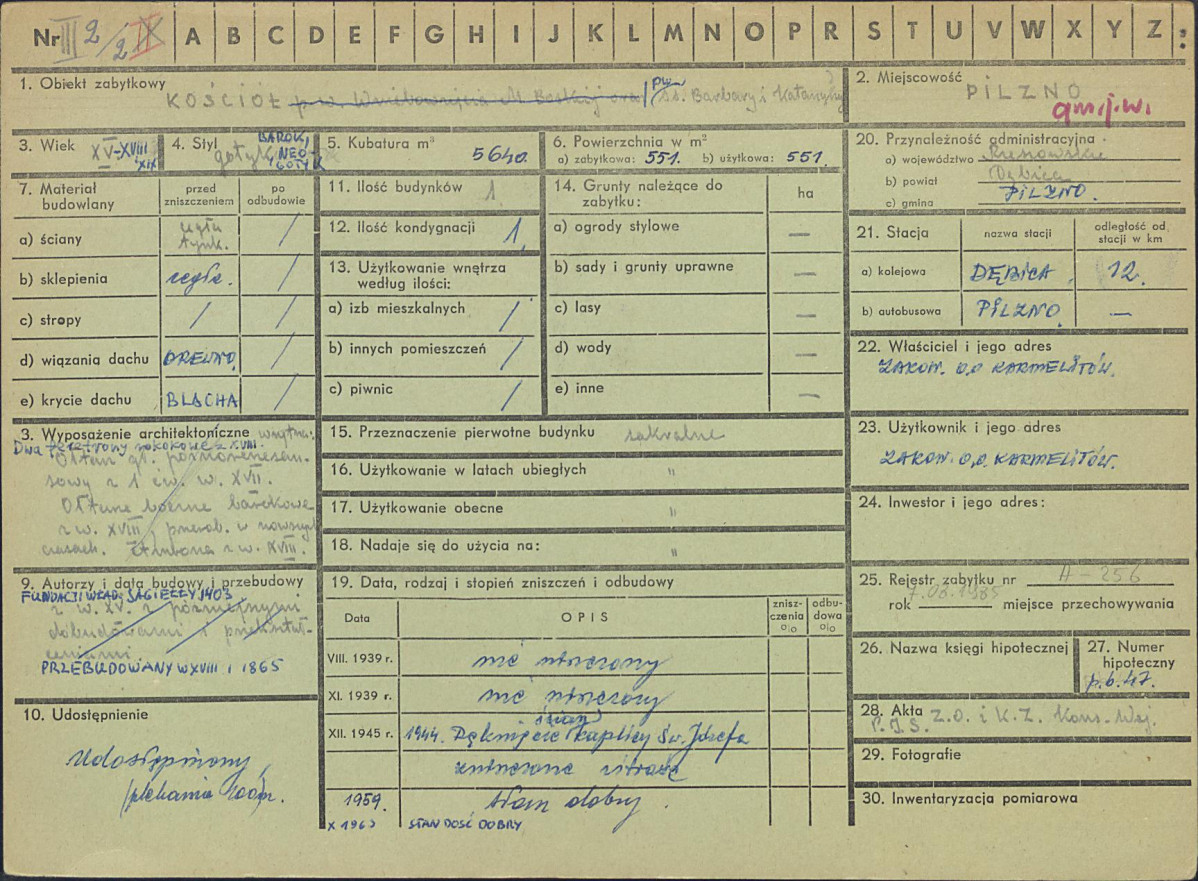 Nr III 2/2 IX A B C D E F G H I J K L M N O P R S T U V W X Y Z
1. Obiekt zabytkowy
KOŚCIÓŁ p.w. Wniebowzięcia M. Boskiej oraz pw. śś. Barbary i Katarzyny
2. Miejscowość
PILZNO
gm. j.w.
3. Wiek XV-XVIII XIX
4. Styl gotyk BAROK, NEO GOTYK
5. Kubatura m³ 5640.
6. Powierzchnia w m²
a) zabytkowa: 551. b) użytkowa: 551.
20. Przynależność administracyjna
a) województwo Rzeszowskie
b) powiat Dębica
c) gmina PILZNO.
7. Materiał budowlany
przed zniszczeniem
po odbudowie
a) ściany cegła tynk. /
b) sklepienia cegła. /
c) stropy / /
d) wiązania dachu DREWNO. /
e) krycie dachu BLACHA /
11. Ilość budynków 1
12. Ilość kondygnacji 1.
13. Użytkowanie wnętrza
według ilości:
a) izb mieszkalnych /
b) innych pomieszczeń /
c) piwnic /
14. Grunty należące do
zabytku:
ha
a) ogrody stylowe —
b) sady i grunty uprawne —
c) lasy —
d) wody —
e) inne —
21. Stacja
nazwa stacji
odległość od
stacji w km
a) kolejowa DĘBICA. 12.
b) autobusowa PILZNO. —
22. Właściciel i jego adres
ZAKON. O.O KARMELITÓW.
23. Użytkownik i jego adres
ZAKON. O.O. KARMELITÓW.
24. Inwestor i jego adres:
3. Wyposażenie architektoniczne wnętrza:
Dwa feretrony rokokowe z XVIII.
Ołtarz gł. późnorenesan-
sowy z 1 ćw. w. XVII.
Ołtarze boczne barokowe
z w. XVIII, przerob. w nowszych
czasach. Ambona z w. XVIII.
15. Przeznaczenie pierwotne budynku sakralne
16. Użytkowanie w latach ubiegłych "
17. Użytkowanie obecne "
18. Nadaje się do użycia na: "
9. Autorzy i data budowy i przebudowy
FUNDACJI WŁAD. JAGIEŁŁY 1403
z w. XV. z późniejszymi
dobudowami i przekształ-
ceniami
PRZEBUDOWANY W XVIII I 1865
10. Udostępnienie
Udostępniony
19. Data, rodzaj i stopień zniszczeń i odbudowy
Data OPIS
znisz-
czenia
%
odbu-
dowa
%
VIII. 1939 r. nie niszczony
XI. 1939 r. nie niszczony
XII. 1945 r. 1944. Pęknięcie ścian kaplicy Św. Józefa
zniszczone witraże
1959. stan dobry.
X 1963 STAN DOŚĆ DOBRY
25. Rejestr zabytku nr A-256
7.08.1985
rok miejsce przechowywania
26. Nazwa księgi hipotecznej
27. Numer
hipoteczny
p.b.47.
28. Akta Z.O. i K.Z. Kons. Woj.
P.I.S.
29. Fotografie
30. Inwentaryzacja pomiarowa